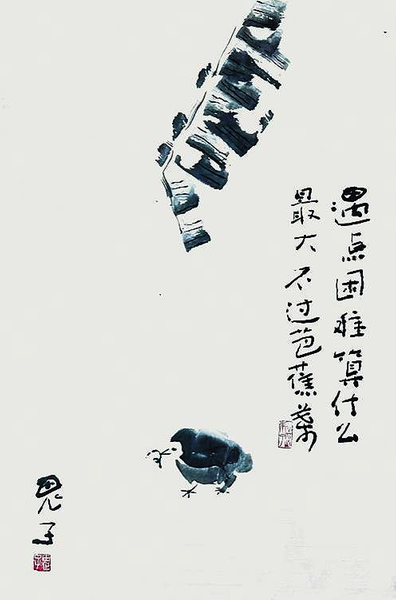 遇点困难算什么
最大不过芭蕉葉